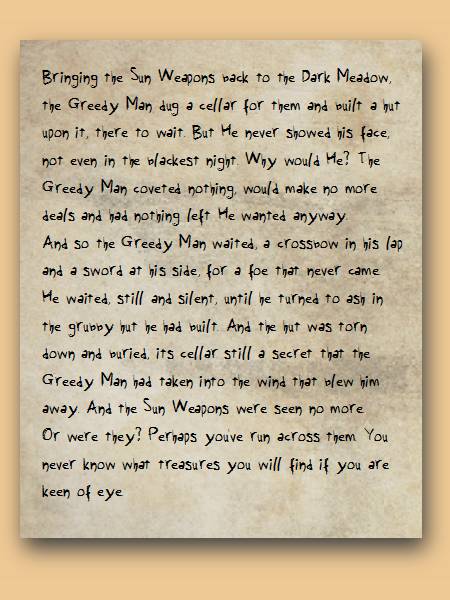 Bringing the Sun Weapons back to the Dark Meadow,
the Greedy Man dug a cellar for them and built a hut
upon it, there to wait. But He never showed his face,
not even in the blackest night. Why would He? The
Greedy Man coveted nothing, would make no more
deals and had nothing left He wanted anyway.
And so the Greedy Man waited, a crossbow in his lap
and a sword at his side, for a foe that never came
He waited, still and silent, until he turned to ash in
the grubby hut he had built. And the hut was torn
down and buried, its cellar still a secret that the
Greedy Man had taken into the wind that blew him
away. And the Sun Weapons were seen no more
Or were they? Perhaps you've run across them You
never know what treasures you will find if you are
keen of eye